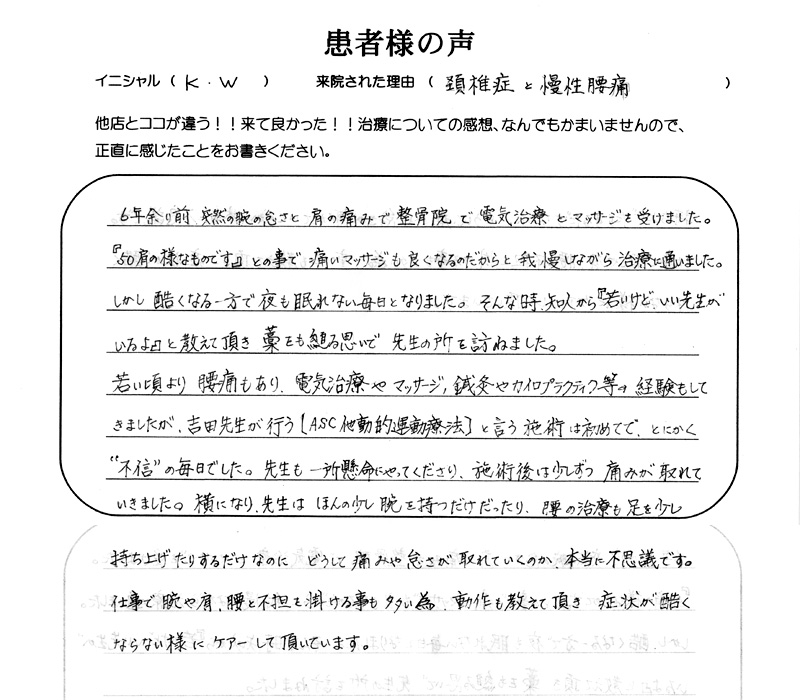 患者様の声
イニシャル（ K・W ） 来院された理由（ 頚椎症と慢性腰痛 ）
他店とココが違う！！来て良かった！！治療についての感想、なんでもかまいませんので、
正直に感じたことをお書きください。
6年余り前 突然の腕の怠さと 肩の痛みで 整骨院で 電気治療とマッサージを受けました。
『50肩の様なものです』との事で 痛いマッサージも良くなるのだからと我慢しながら治療に通いました。
しかし 酷くなる一方で夜も眠れない毎日となりました。そんな時、知人から『若いけど、いい先生が
いるよ』と教えて頂き 藁をも縋る思いで 先生の所を訪ねました。
若い頃より 腰痛もあり、電気治療やマッサージ、鍼灸やカイロプラクティク等々 経験もして
きましたが、吉田先生が行う【ASC他動的運動療法】と言う施術は初めてで、とにかく
“不信”の毎日でした。先生も一所懸命にやってくださり、施術後は少しずつ 痛みが取れて
いきました。横になり、先生は ほんの少し 腕を持つだけだったり、腰の治療も足を少し
持ち上げたりするだけなのに どうして痛みや怠さが取れていくのか、本当に不思議です。
仕事で腕や肩、腰と不担を掛ける事も多い為、動作も教えて頂き 症状が酷く
ならない様に ケアーして頂いています。